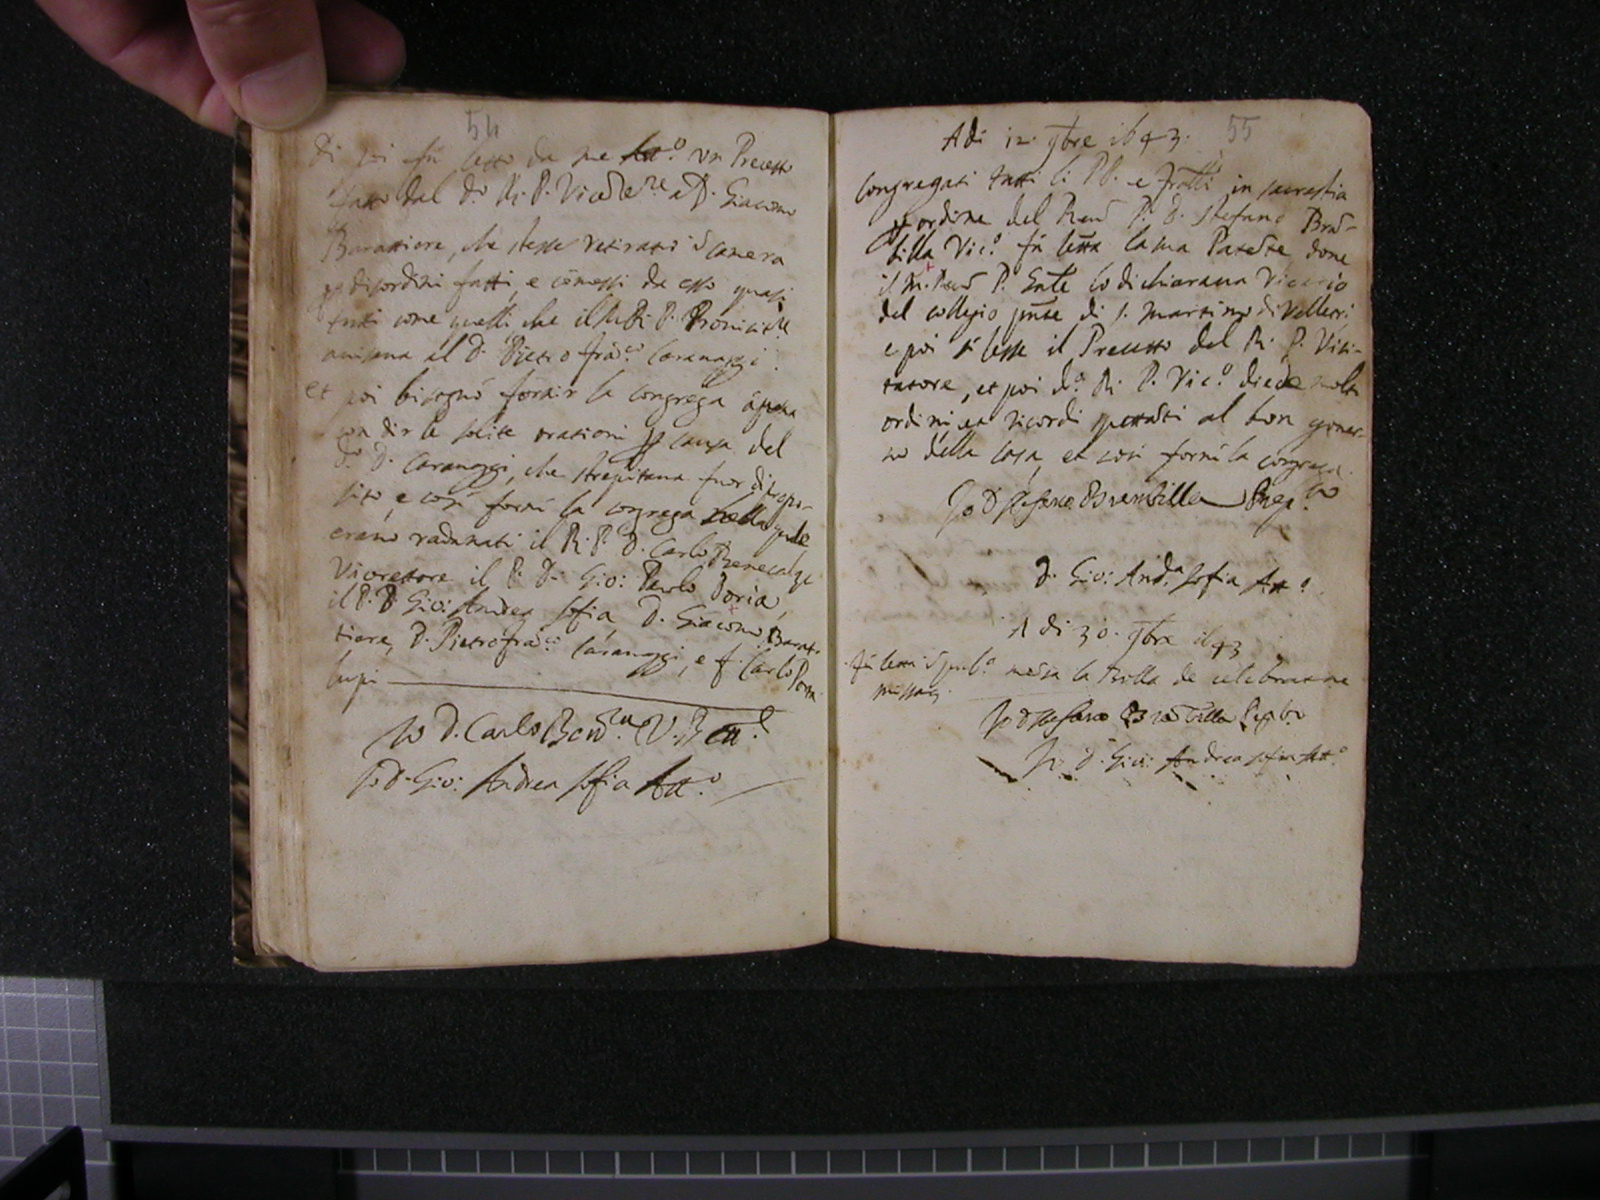 54
Di poi fù letto da me Att.º un Precetto
fatto dal d.º R. P. Vice Re.re a D. Giacomo
Barattiere, che stesse retirato ī camera
disordini fatti, e cōmessi da esso quasi
tutti come quelli che il M. R. P.
al D. Pietro frā.co Caravaggi.
et poi bisognò fornir la congrega
con dir le solite orationi p causa del
d.º D. Caravaggi, che strepitava fuor di propo-
sito, e così fornì la cōgrega nella quale
erano radunati il R. P. D. Carlo
Vicerettore il P. D. Gio: Paolo Doria,
il P. D. Gio: Andrea Sofia D. Giacomo Barat-
tiere, D. Pietro frā.co Caravaggi, e f. Carlo
lupi
Io D. Carlo
Io D. Gio: Andrea Sofia Att.º
55
Adi 12. 9bre 1643.
Congregati tutti li PP. e fratti in sacrestia
p ordine del Rend P. D. Stefano Bram-
billa Vic.º fù letta la sua Patēte, dove
il M. Rend P. Gnle lo dichiarava Vicario
del collegio pnte di S. Martino di Velletri
e poi si lesse il Precetto del R. P. Visi-
tatore, et poi d.º R. P. Vic.º diede molti
ordini, et ricordi spettāti al bon gover-
no della Casa, et così fornì la cōgrega.
Io D Stefano Brambilla
D. Gio: And.a Sofia Att.º
A di 30. 9bre 1643
Fù letta ī publ.º mēsa la Bolla de celebratione
missarū.
Io D Stefano Brābilla
Io D. Gio: Andrea Sofia Att.º